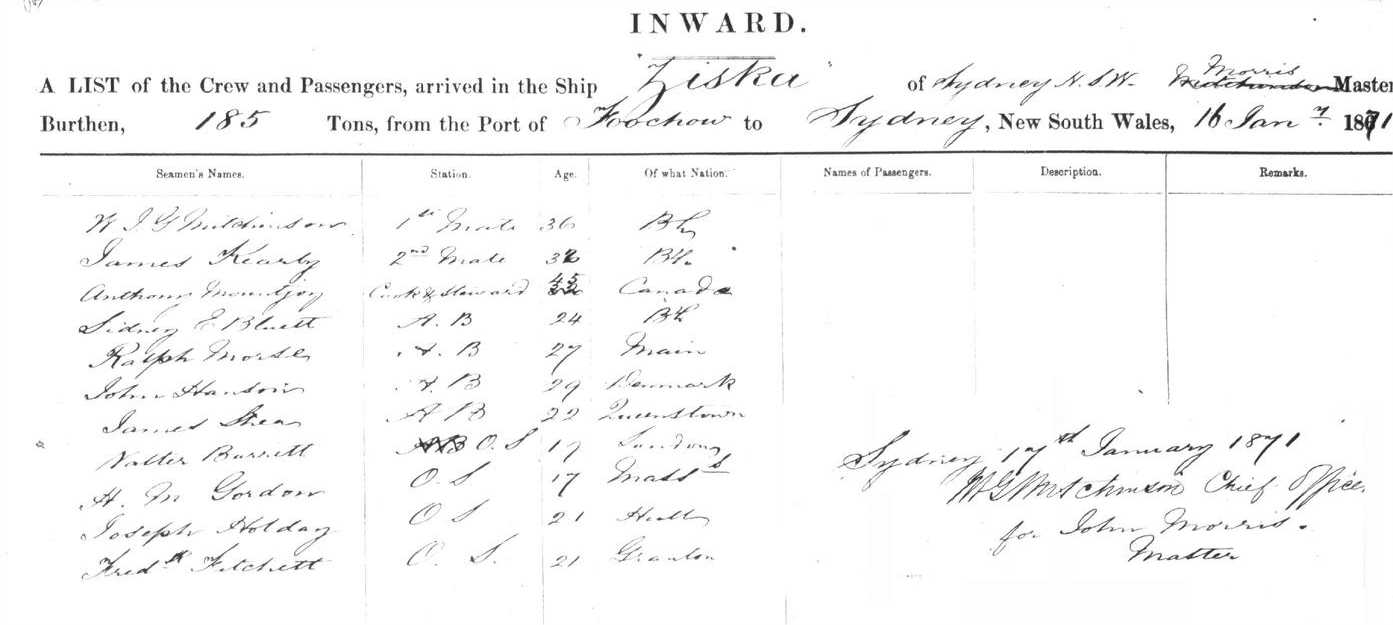 INWARD.
A LIST of the Crew and Passengers, arrived in the Ship "Ziska" of Sydney N.S.W. Morris Master
Burthen, 185 Tons, from the Port of Foochow to Sydney, New South Wales, 16 Jany. 1871
Seamen's Names. Station. Age. Of what Nation. Names of Passengers. Description. Remarks.
1st Mate 36 Bh
James Kearby 2nd Mate 32 Bh.
Anthony Mountjoy Cook & Steward 45 Canada
Sidney E Bluett A.B 24 Bh
Ralph Morse A.B 27 Main
John Hanson A.B 29 Denmark
James Shea A B 22 Queenstown
Walter Burrett O.S 19 London
H. M Gordon O.S 17 Masss
Joseph Holday O S 21 Hull
Fredk Fitchett O. S. 21 Granton
Sydney 17th January 1871
W G Mitchinson Chief Office
for John Morris.
Master